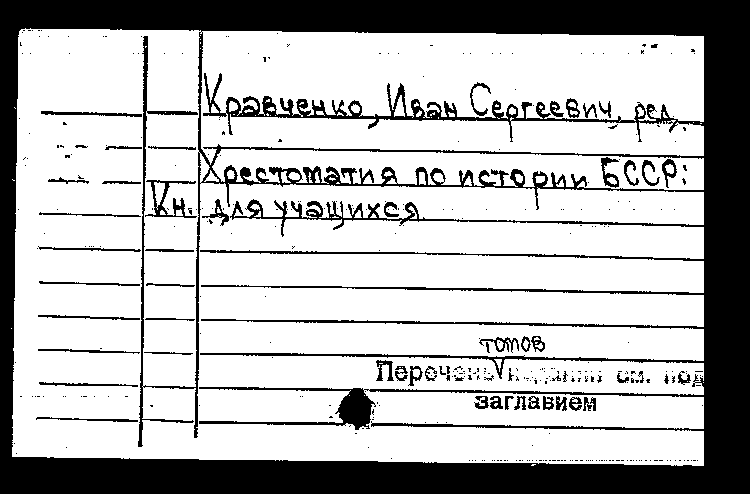 Кравченко, Иван Сергеевич, ред.
Хрестоматия по истории БССР:
Кн. для учащихся
томов
Перечень изданий см. под
заглавием